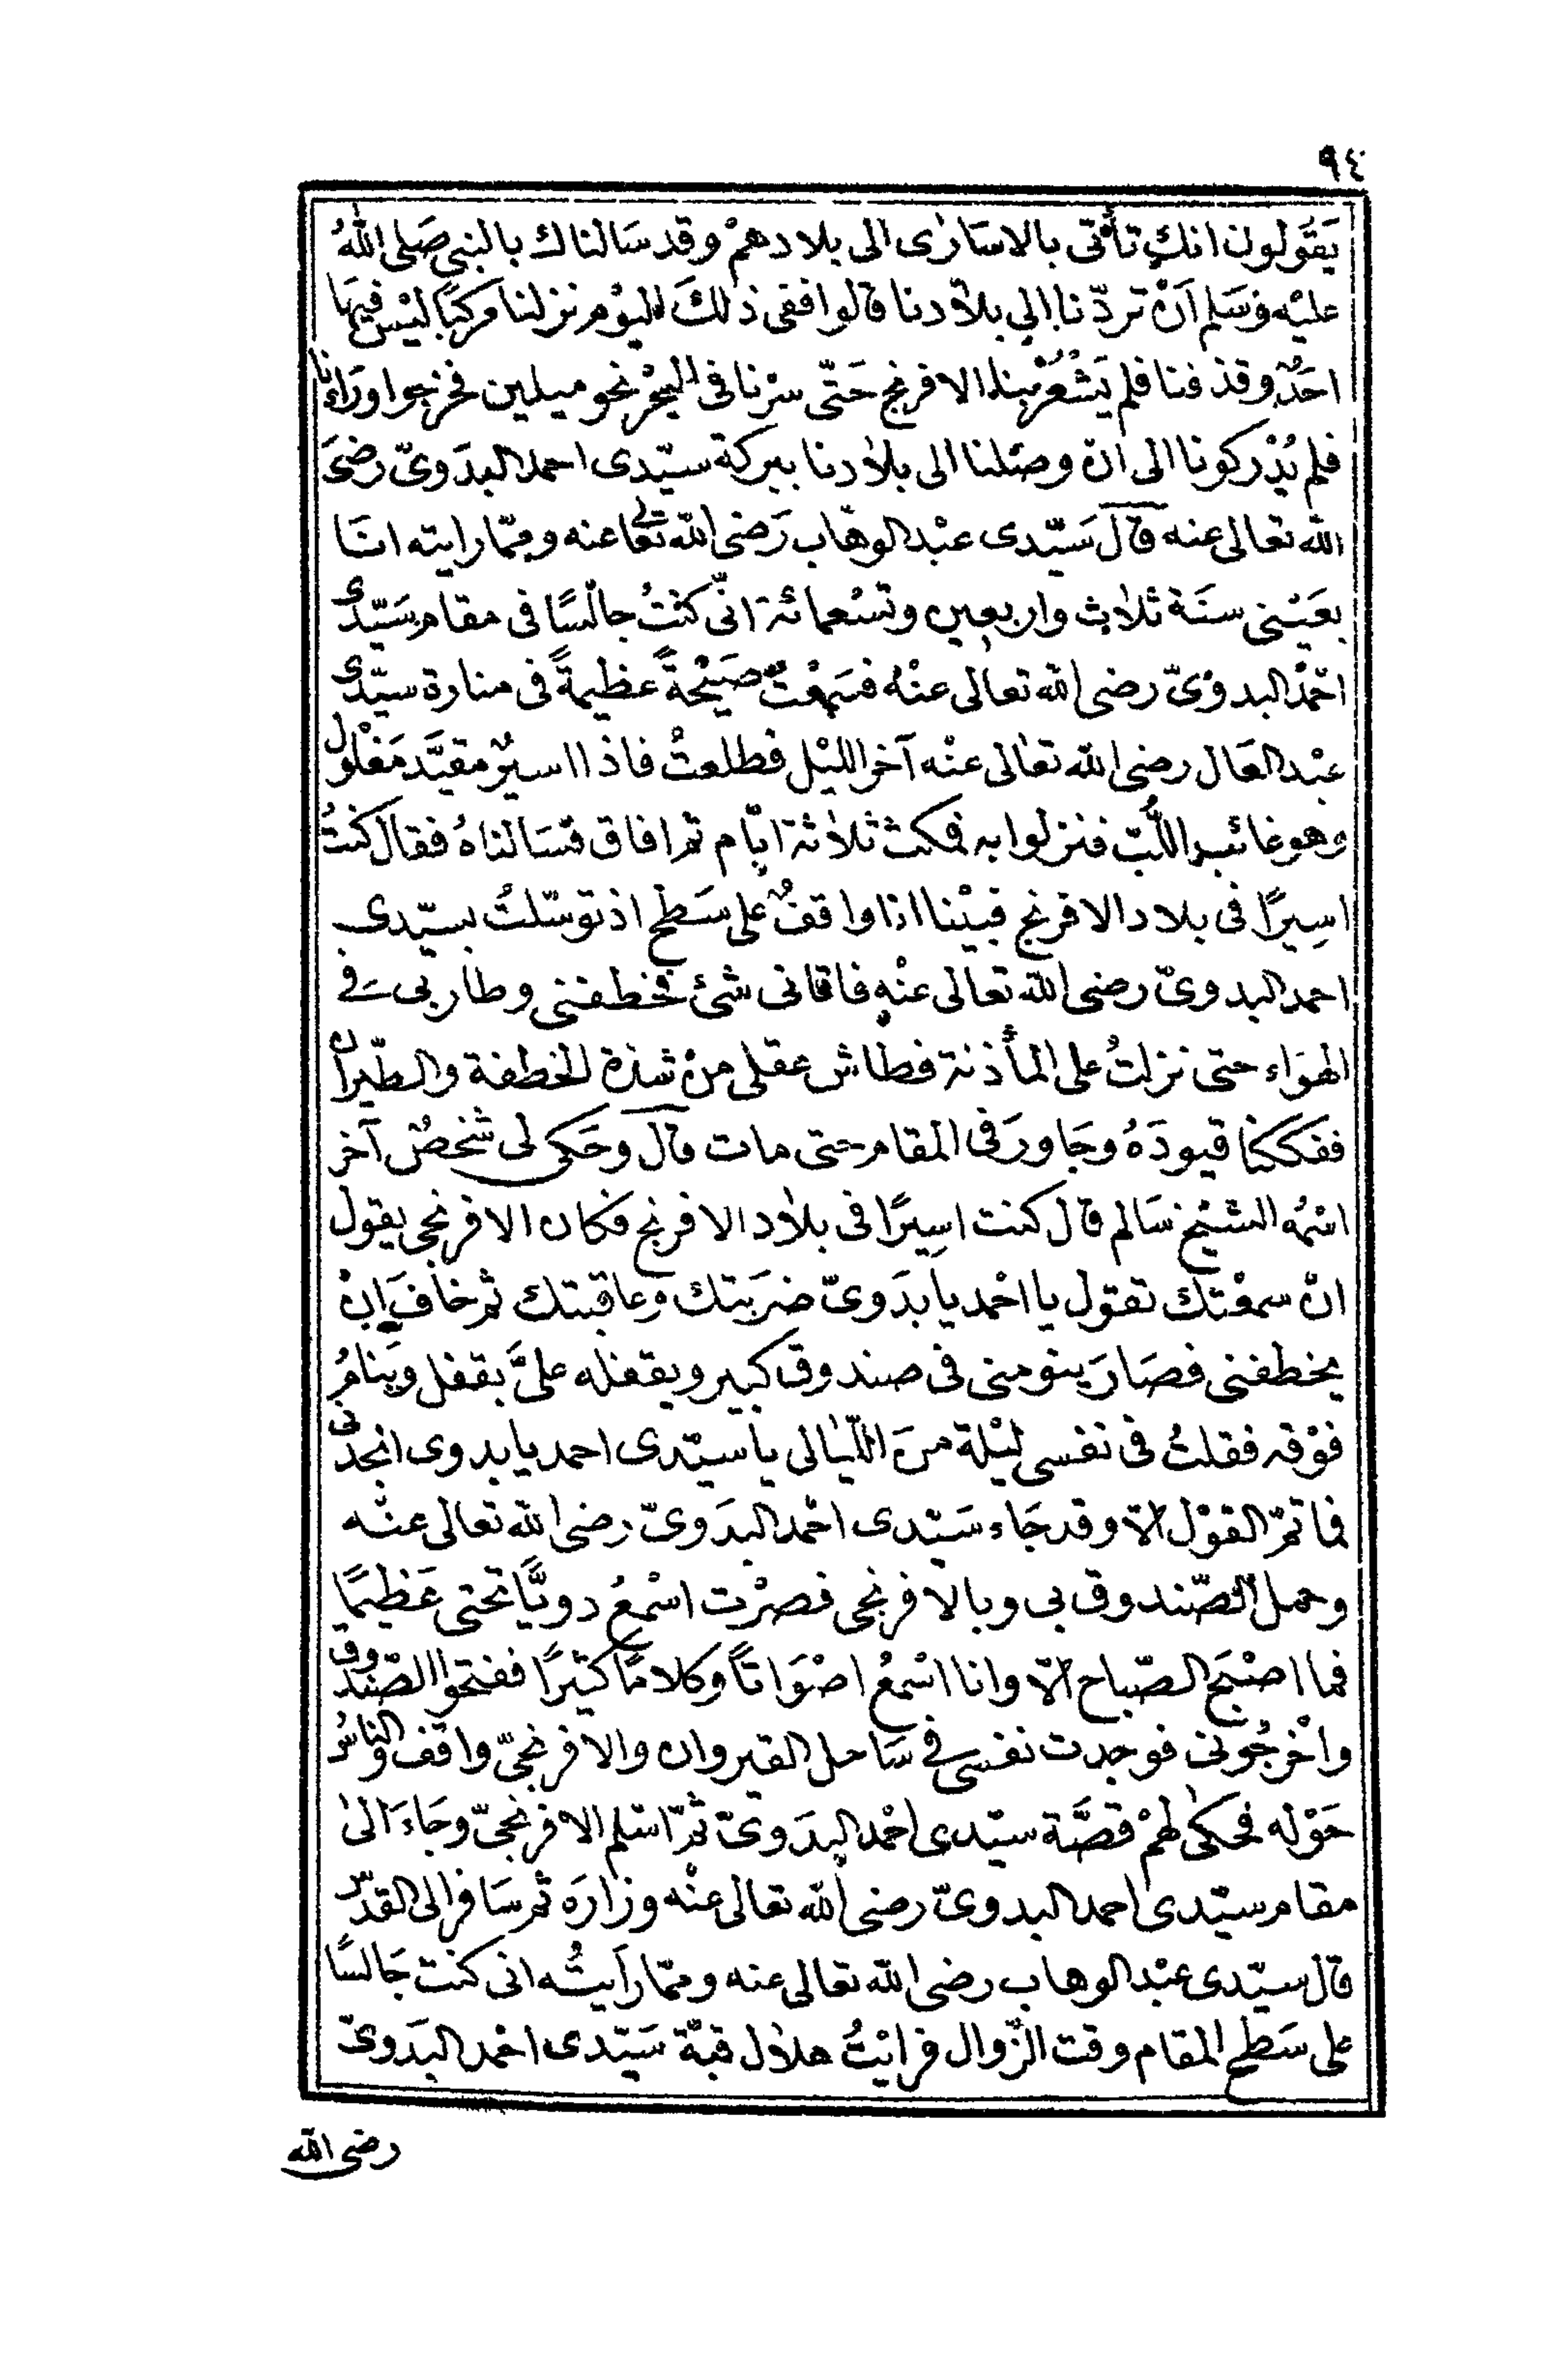 ٩٤
يَقُولون انك تأتى بالاسَارٰى الى بلادهمْ وقد سَالناك بالنبى صَلى اللّٰهُ
عليْه وَسَلم اَنْ تردّنا الى بلاٰدنا قالوا ففى ذٰلكَ اليْوم نزلنا مركبًا ليْس فيهَا
احَدٌ وقذفنا فلم يَشْعُرْ بنا الافرنج حَتّى سرْنا فى البحْر نحو ميلين فخرجوا ورَاءنا
فلم يُدْركونا الى ان وصَلنا الى بلاٰدنا ببركة سيّدى احمد البدَوىّ رضىَ
اللّه تعالى عنه قالَ سَيّدى عبْد الوهّاب رَضى اللّه تعالى عنه وممّا رايته انَا
بعَيْنى سنَة ثلاٰث واربعين وتسْعمائة انّى كنْتُ جالسًا فى مقام سَيّدى
احْمَد البدوىّ رضى اللّه تعالى عنْهُ فسَمعْتُ صَيْحَةً عَظيمةً فى منارة سيّدى
عبْد العَال رضى اللّه تعٰالى عنْه آخر الليْل فطلعتْ فاذا اسيرٌ مقيَّد مَغْلُول
وهو غائب اللُّبّ فنزلوا به فمكث ثلاٰثة ايّام ثم افاق فسَالناهُ فقال كنتُ
اسِيرًا فى بلاد الافرنج فبيْنا انا واقفٌ على سَطح اذ توسّلتُ بسيّدى
احمد البدوىّ رضى اللّه تعالى عنْه فاتانى شئ فخطفنى وطار بى فى
الهوَاء حتى نزلتُ على المأذنة فطاش عقلى منْ شدّة الخطفة والطّيران
ففككنا قيودَهُ وجَاورَ فى المقام حتى مات قال وحَكى لى شخصٌ آخر
اسْمُه الشيْخ سَالم قال كنت اسِيرًا فى بلاٰد الافرنج فكان الافرنجى يقول
انْ سمعْتك تقول يا احْمد يا بدَوىّ ضرَبتك وعاقبتك ثم خافَ انْ
يخطفنى فصَارَ ينومنى فى صندوق كبير ويقفله علىَّ بقفل وينامُ
فوْقه فقلتُ فى نفسى ليْلة منَ اللّيالى يا سيّدى احمد يا بدوى انجدْنى
فما تمّ القوْل الاّ وقد جَاء سَيّدى احْمد البدَوىّ رضى اللّه تعالى عنْه
وحمل الصّندوق بى وبالافرنجى فصرْت اسْمعُ دويًّا تحتى عَظيمًا
فما اصْبَح الصّباح الاّ وانا اسْمعُ اصْوَاتاً وكلامًا كثيرًا ففتحوا الصّندوق
واخْرجُونى فوجدت نفسى فى سَاحل القيروان والافرنجىّ واقف والناسُ
حَوْله فحكى لهمْ قصَّة سيّدى احْمد البدَوىّ ثمّ اسْلم الافرنجىّ وجَاءَ الىٰ
مقام سيّدى احمد البدوىّ رضى اللّه تعالى عنْه وزارَه ثم سَافر الى القدْس
قال سيّدى عبْد الوهاب رضى اللّه تعالى عنه وممّا رأيتُه انى كنت جَالسًا
على سَطح المقام وقت الزّوال فرايْتُ هلاٰل قبّة سَيّدى احْمد البَدَوىّ
رضى اللّه